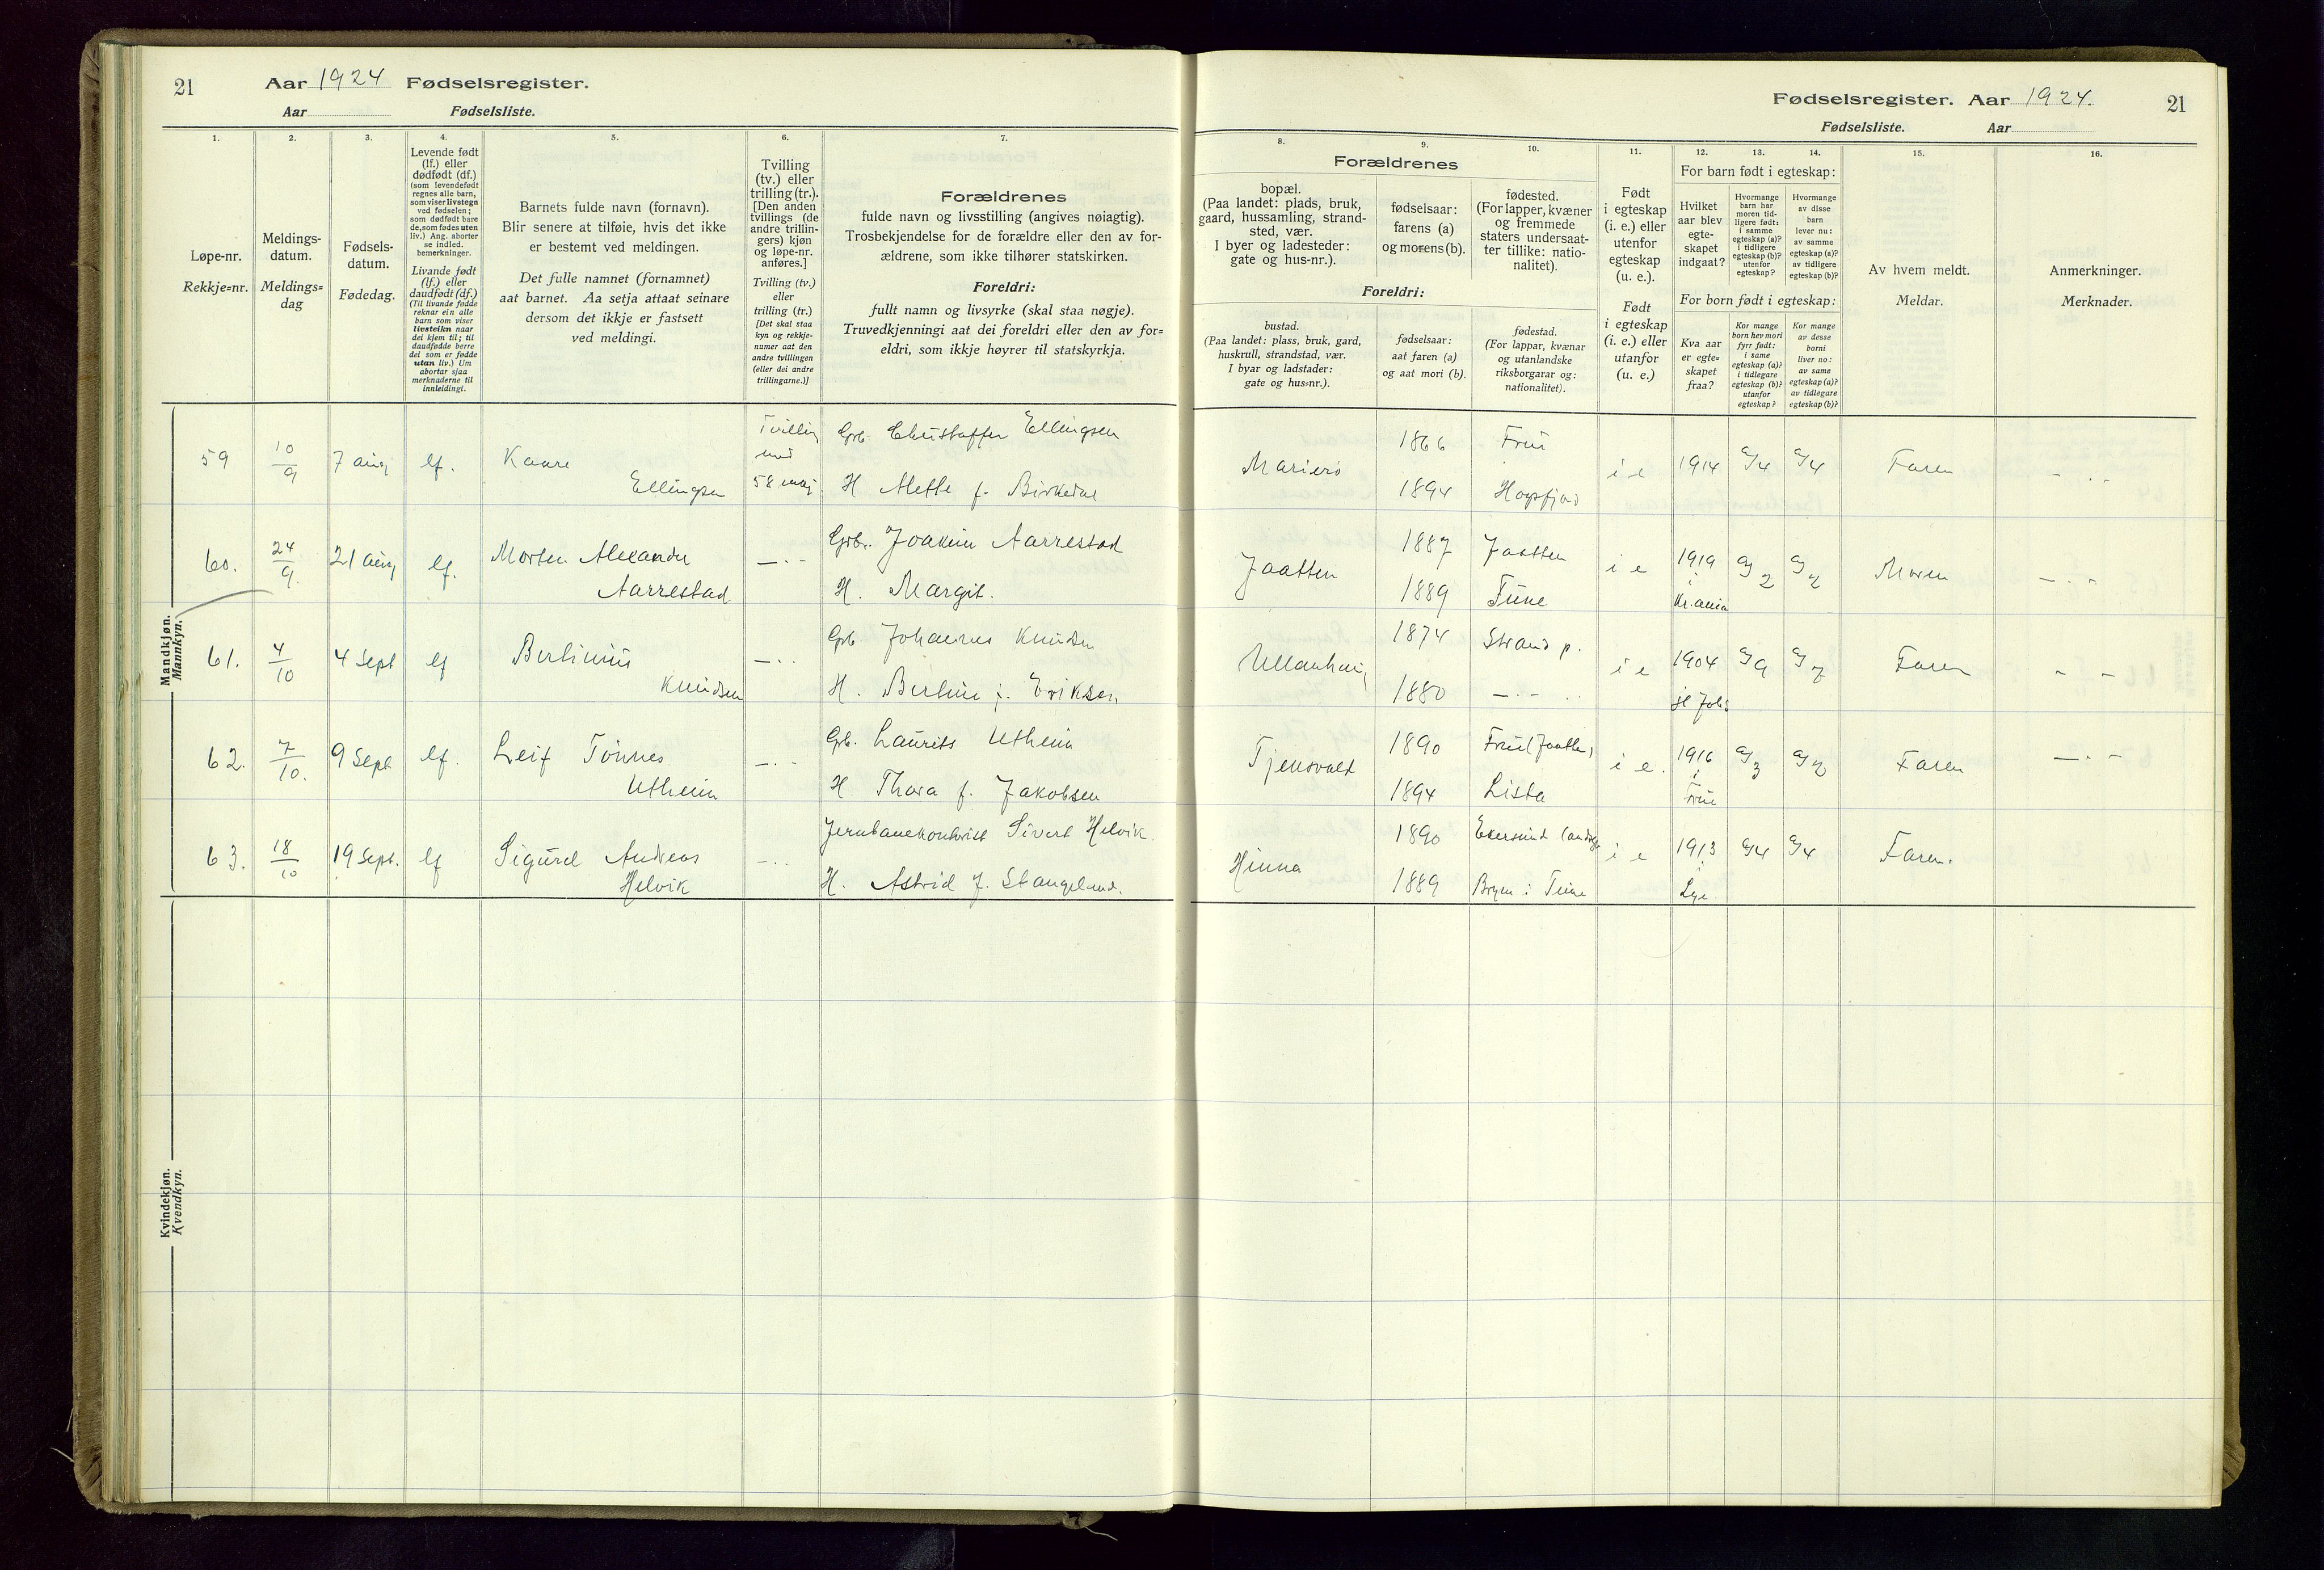 21 Aar 1924 Fødselsregister.
Aar Fødselsliste.
1. 2. 3. 4. 5. 6. 7.
Løpe-nr.
Rekkje=nr.
Meldings-
datum.
Meldings=
dag
Fødsels-
datum.
Fødedag.
Levende født
(lf.) eller
dødfødt (df.)
(som levendefødt
regnes alle barn,
som viser livstegn
ved fødselen;
som dødfødt bare
de, som fødes uten
liv.) Ang. aborter
se indled.
bemerkninger.
Livande født
(lf.) eller
daudfødt (df.)
(Til livande fødde
reknar ein alle
barn som viser
livsteikn naar
dei kjem til; til
daudfødde berre
dei som er fødde
utan liv.) Um
abortar sjaa
merknaderne til
innleidingi.
Barnets fulde navn (fornavn).
Blir senere at tilføie, hvis det ikke
er bestemt ved meldingen.
Det fulle namnet (fornamnet)
aat barnet. Aa setja attaat seinare
dersom det ikkje er fastsett
ved meldingi.
Tvilling
(tv.) eller
trilling (tr.).
[Den anden
tvillings (de
andre trillin-
gers) kjøn
og løpe-nr.
anføres.]
Tvilling (tv.)
eller
trilling (tr.)
[Det skal staa
kyn og rekkje-
numer aat den
andre tvillingen
(eller dei andre
trillingarne.)]
Forældrenes
fulde navn og livsstilling (angives nøiagtig).
Trosbekjendelse for de forældre eller den av for-
ældrene, som ikke tilhører statskirken.
Foreldri:
fullt namn og livsyrke (skal staa nøgje).
Truvedkjenningi aat dei foreldri eller den av for=
eldri, som ikkje høyrer til statskyrkja.
Mandkjøn.
Mannkyn.
59 10/9 7 aug lf. Kaare Ellingsen Tvilling med 58 Grb. Christoffer Ellingsen
H Alette f. Birkedal
60. 24/9. 21 aug lf. Morten Alexander Aarrestad —.- Grbr. Joakim Aarrestad
H. Margit.
61. 4/10 4 Sept lf Bertinius Knudsen —.. Grb. Johannes Knudsen
H. Bertine f. Eriksen
62. 7/10. 9 Sept lf. Leif Tønnes Utheim —.- Grb. Laurits Utheim
H. Thora f. Jakobsen
63. 18/10 19 Sept. lf Sigurd Andreas Helvik -.. Jernbanekontorist Sivert Helvik.
H. Astrid f. Stangeland.
Kvindekjøn.
Kvendkyn.
Fødselsregister. Aar 1924. 21
Fødselsliste. Aar
8. 9. 10. 11. 12. 13. 14. 15. 16.
Forældrenes
bopæl.
(Paa landet: plads, bruk,
gaard, hussamling, strand-
sted, vær.
I byer og ladesteder:
gate og hus-nr.).
fødselsaar:
farens (a)
og morens (b).
fødested.
(For lapper, kvæner
og fremmede
staters undersaat-
ter tillike: natio-
nalitet).
Foreldri:
bustad.
(Paa landet: plass, bruk, gard,
huskrull, strandstad, vær.
I byar og ladstader:
gate og hus=nr.).
fødselsaar:
aat faren (a)
og aat mori (b).
fødestad.
(For lappar, kvænar
og utanlandske
riksborgarar og:
nationalitet).
Født
i egteskap
(i. e.) eller
utenfor
egteskap
(u. e.).
Født
i egteskap
(i. e.) eller
utanfor
(u. e.)
For barn født i egteskap:
Hvilket
aar blev
egte-
skapet
indgaat?
Hvormange
barn har
moren tid-
ligere født:
i samme
egteskap (a)?
i tidligere
egteskap (b)?
utenfor
egteskap?
Hvormange
av disse
barn
lever nu:
av samme
egteskap (a)?
av tidligere
egteskap (b)?
For born født i egteskap:
Kva aar
er egte=
skapet
fraa?
Kor mange
born hev mori
fyrr født:
i same
egteskap (a)?
i tidlegare
egteskap (b)?
utanfor
egteskap?
Kor mange
av desse
borni
liver no:
av same
egteskap (a)?
av tidlegare
egteskap (b)?
Av hvem meldt.
Meldar.
Anmerkninger.
Merknader.
Mariero 1866 Frue i e 1914 a/4 a/4 Faren - . .
1894 Høgsfjord
Jaatten 1887 Jaatten i e 1919 i Kr.ania a/2 a/2 Moren —.-
1889 Tune
Ullenhaug 1874 Strand p. i e 1904 a/9 a/7 Faren - -
1880 —.- ..
Tjensvold 1890 Frue (Jaatten) i e. 1916 i Frue a/3 a/2 Faren —.-
1894 Lista
Hinna 1890 Ekersund i e 1913 i Lye a/4 a/4 Faren.
1889 i Time